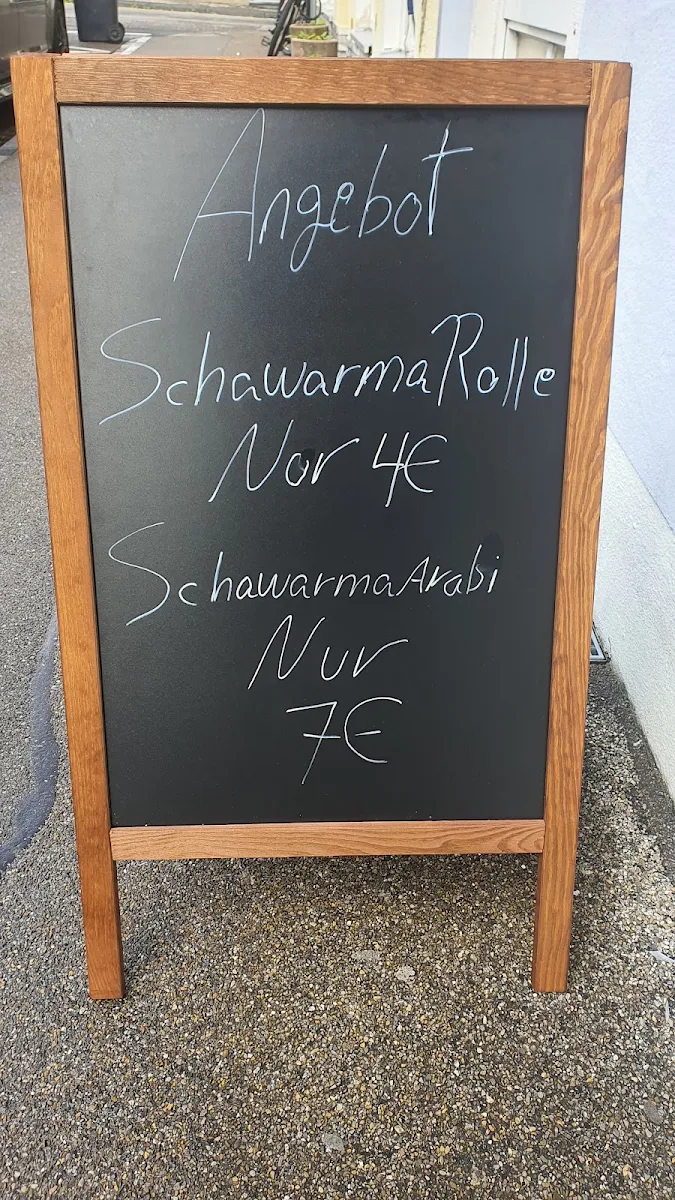 Angebot
Schawarma Rolle
Nor 4€
Schawarma Arabi
Nur
7€